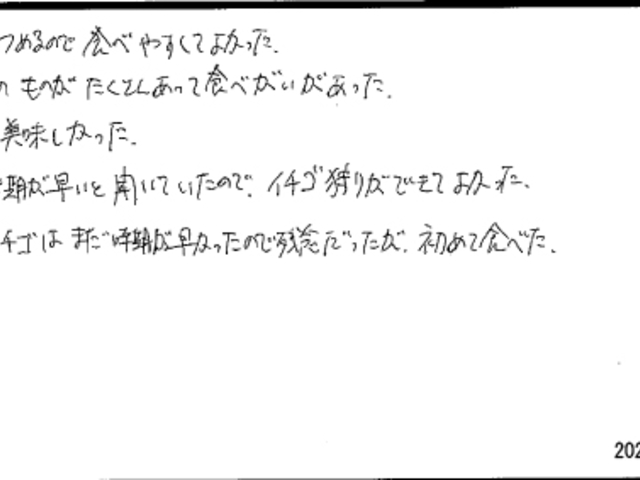 つめるので食べやすくてよかった。
ものがたくさんあって食べがいがあった。
美味しかった。
期が早いと聞いていたので、イチゴ狩りができてよかった。
チゴはまだ時期が早かったので残念だったが、初めて食べた。
202